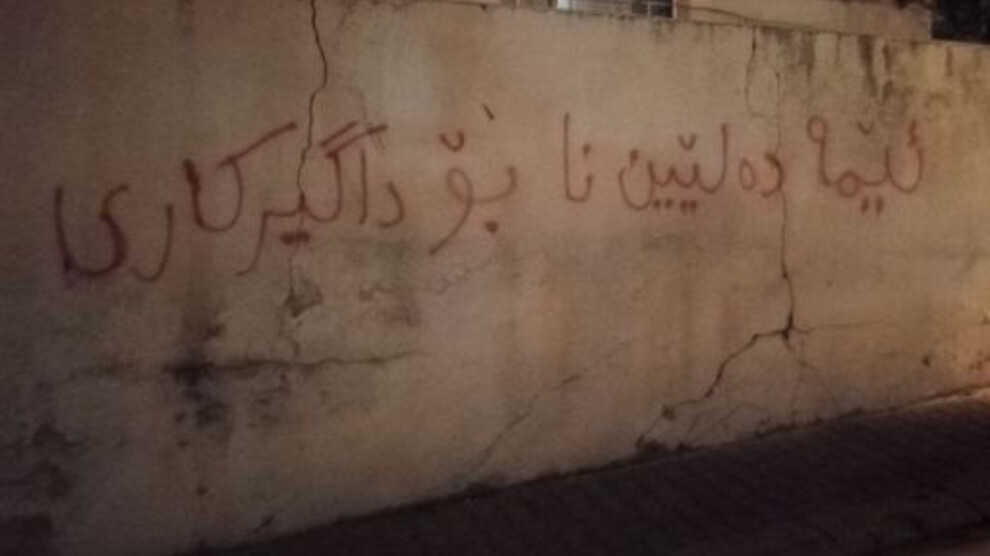 ئێمە دەلێین نا بۆ داگیرکاری